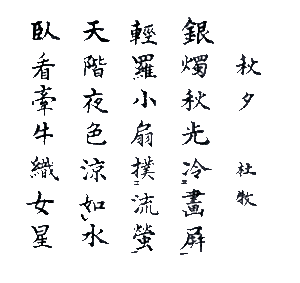 秋夕 杜牧
銀燭秋光冷畫屏
輕羅小扇撲流螢
天階夜色涼如水
臥看牽牛織女星